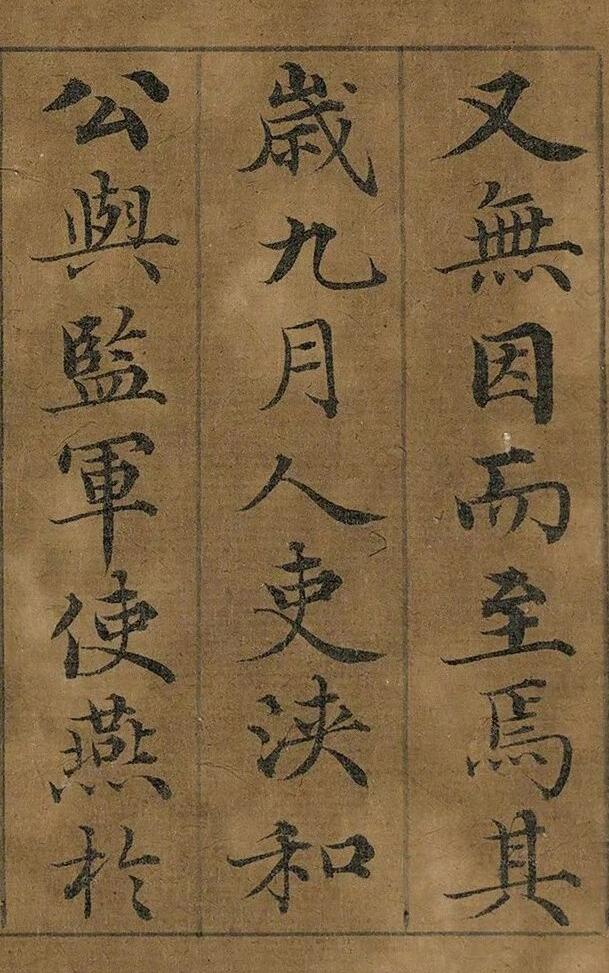 又無因而至焉其
歲九月人吏浹和
公與監軍使燕於